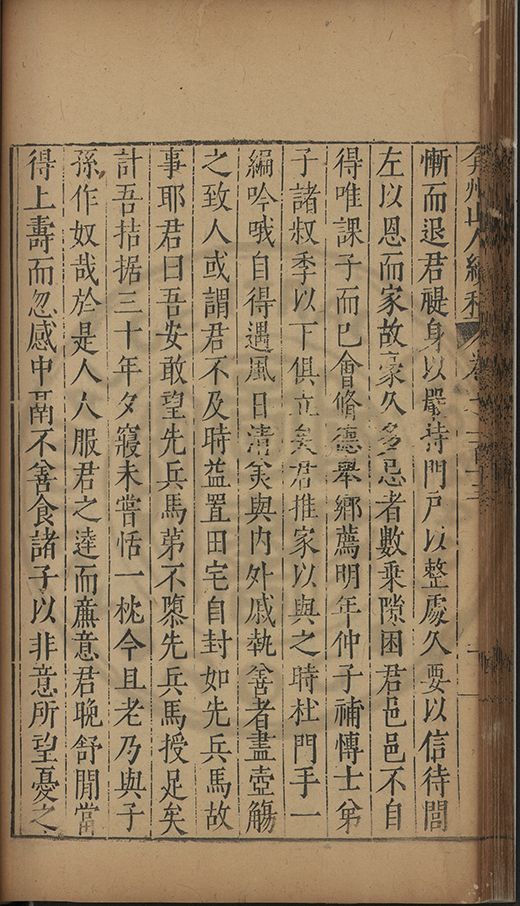 弇州山人續稿 卷之一百十三
慚而退君禔身以嚴待門戶以整處久要以信待閭
左以恩而家故豪久多忌者數乘隙困君邑邑不自
得唯課子而已會脩德舉鄉薦明年仲子補博士弟
子諸叔季以下俱立矣君推家以與之時杜門手一
編吟哦自得遇風日清美與內外戚執善者盡壺觴
之致人或謂君不及時益置田宅自封如先兵馬故
事耶君曰吾安敢望先兵馬第不墮先兵馬授足矣
計吾拮据三十年夕寢未嘗恬一枕今且老乃與子
孫作奴哉於是人人服君之達而廉意君晚舒閒當
得上壽而忽感中鬲不善食諸子以非意所望憂之